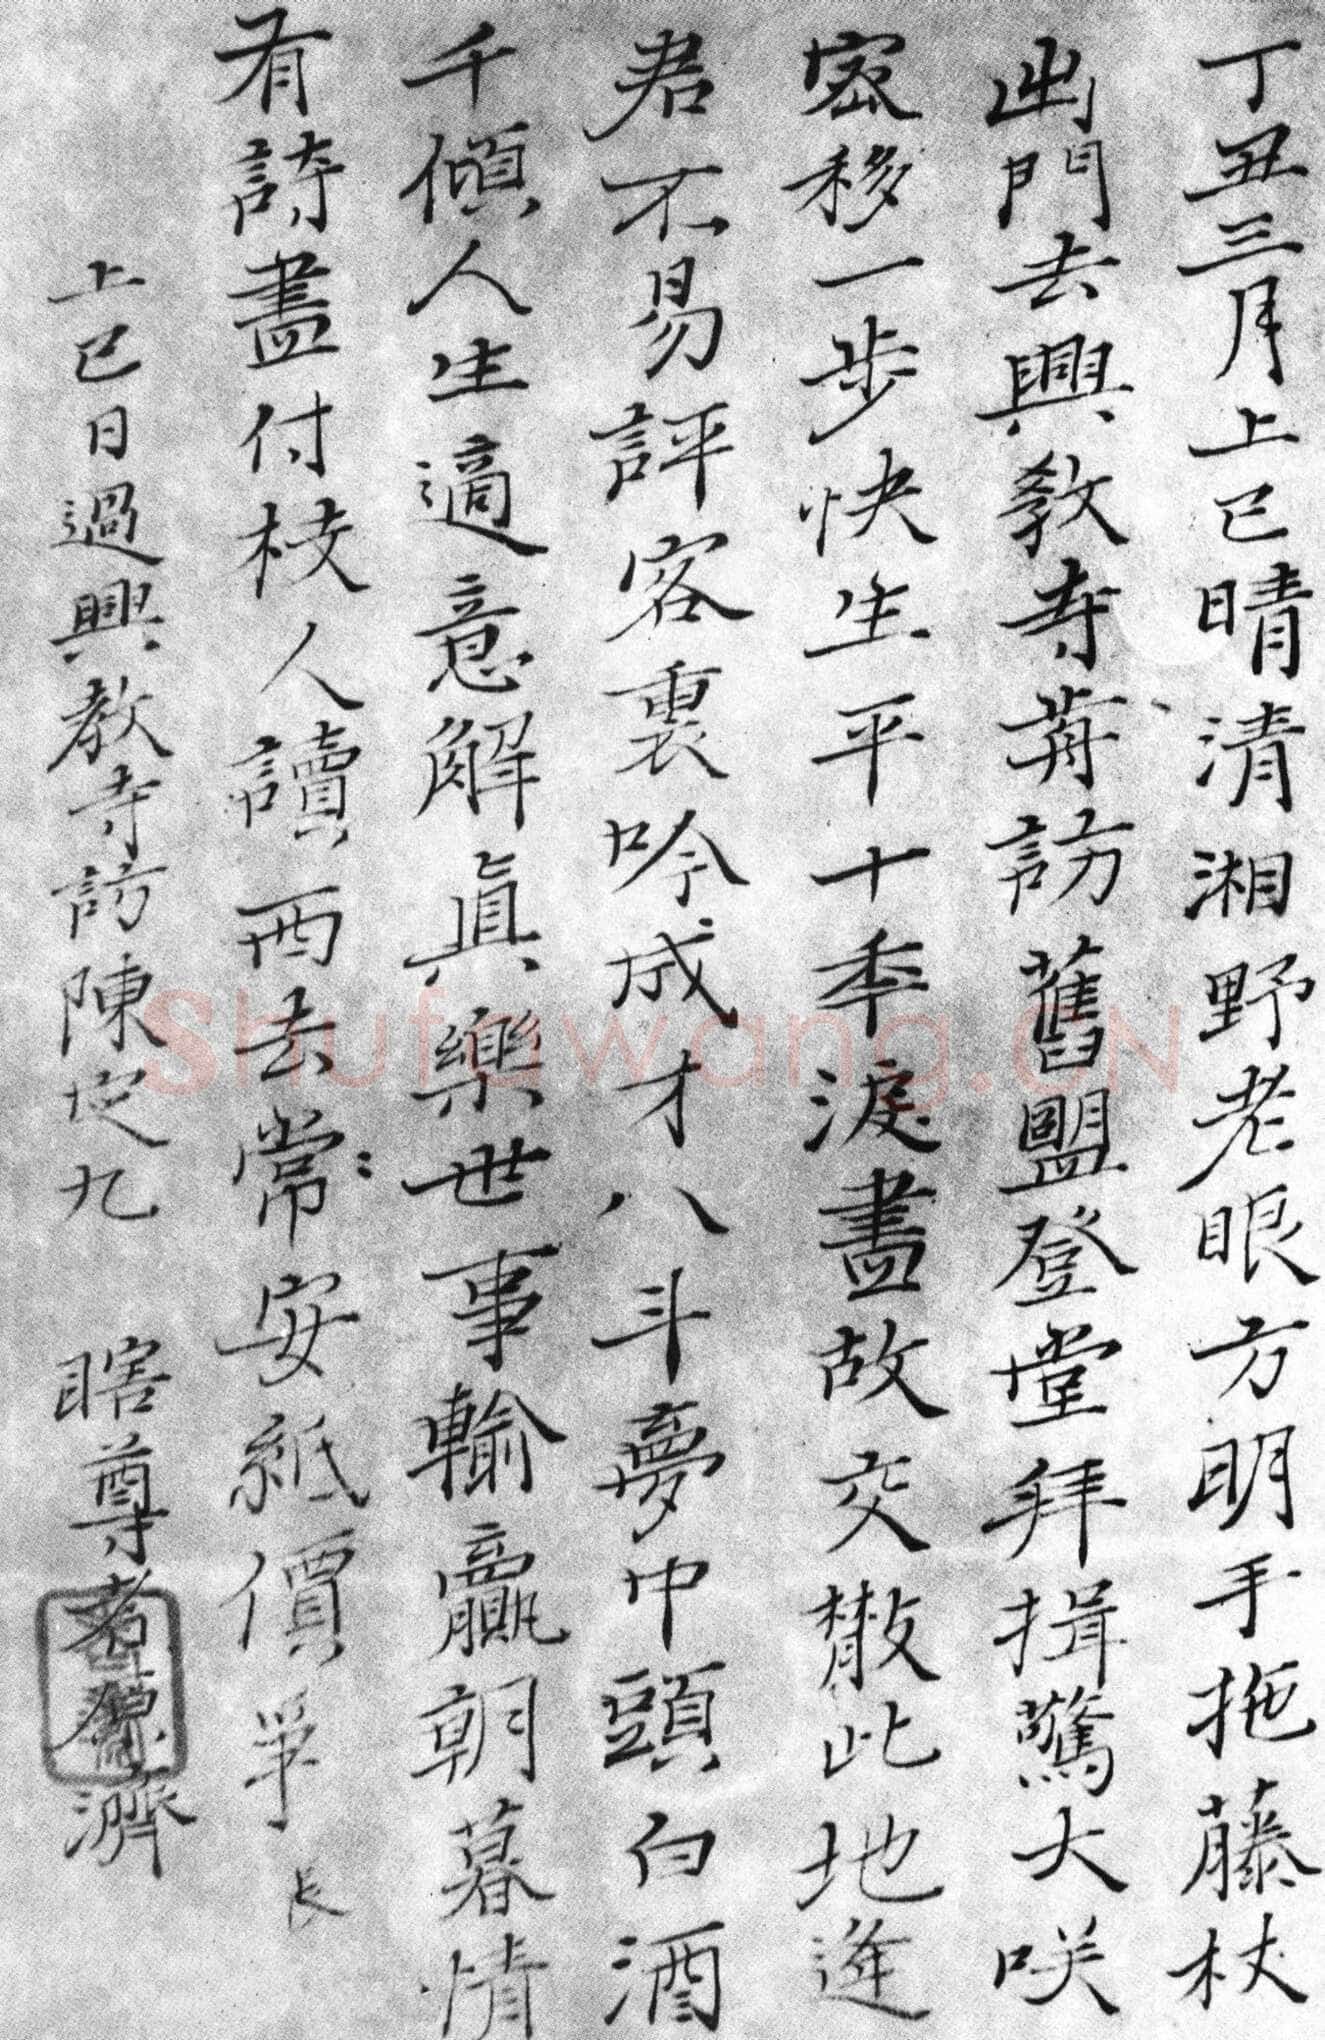 丁丑三月上巳晴清湘野老眼方明手拖藤杖
出門去興教寺前訪舊盟登堂拜揖驚大咲
密移一步快生平十年淚盡故交散此地逢
君不易評客裏吟成才八斗夢中頭白酒
千傾人生適意解真樂世事輸贏朝暮情
有詩盡付枝人讀西去常安紙價爭
長
上巳日過興教寺訪陳定九 瞎尊者原濟
Shufawang.CN